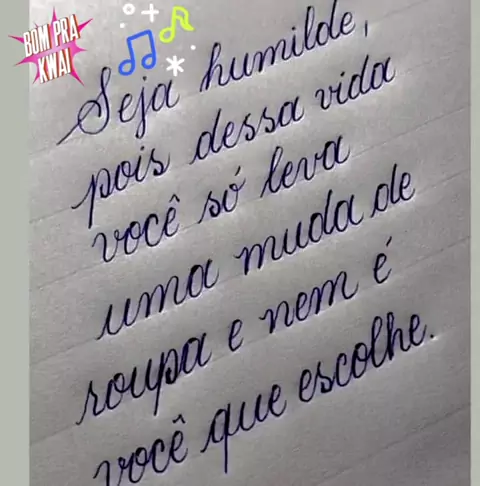 BOM PRA
KWAI
Seja humilde,
pois dessa vida
você só leva
uma muda de
roupa e nem é
você que escolhe.